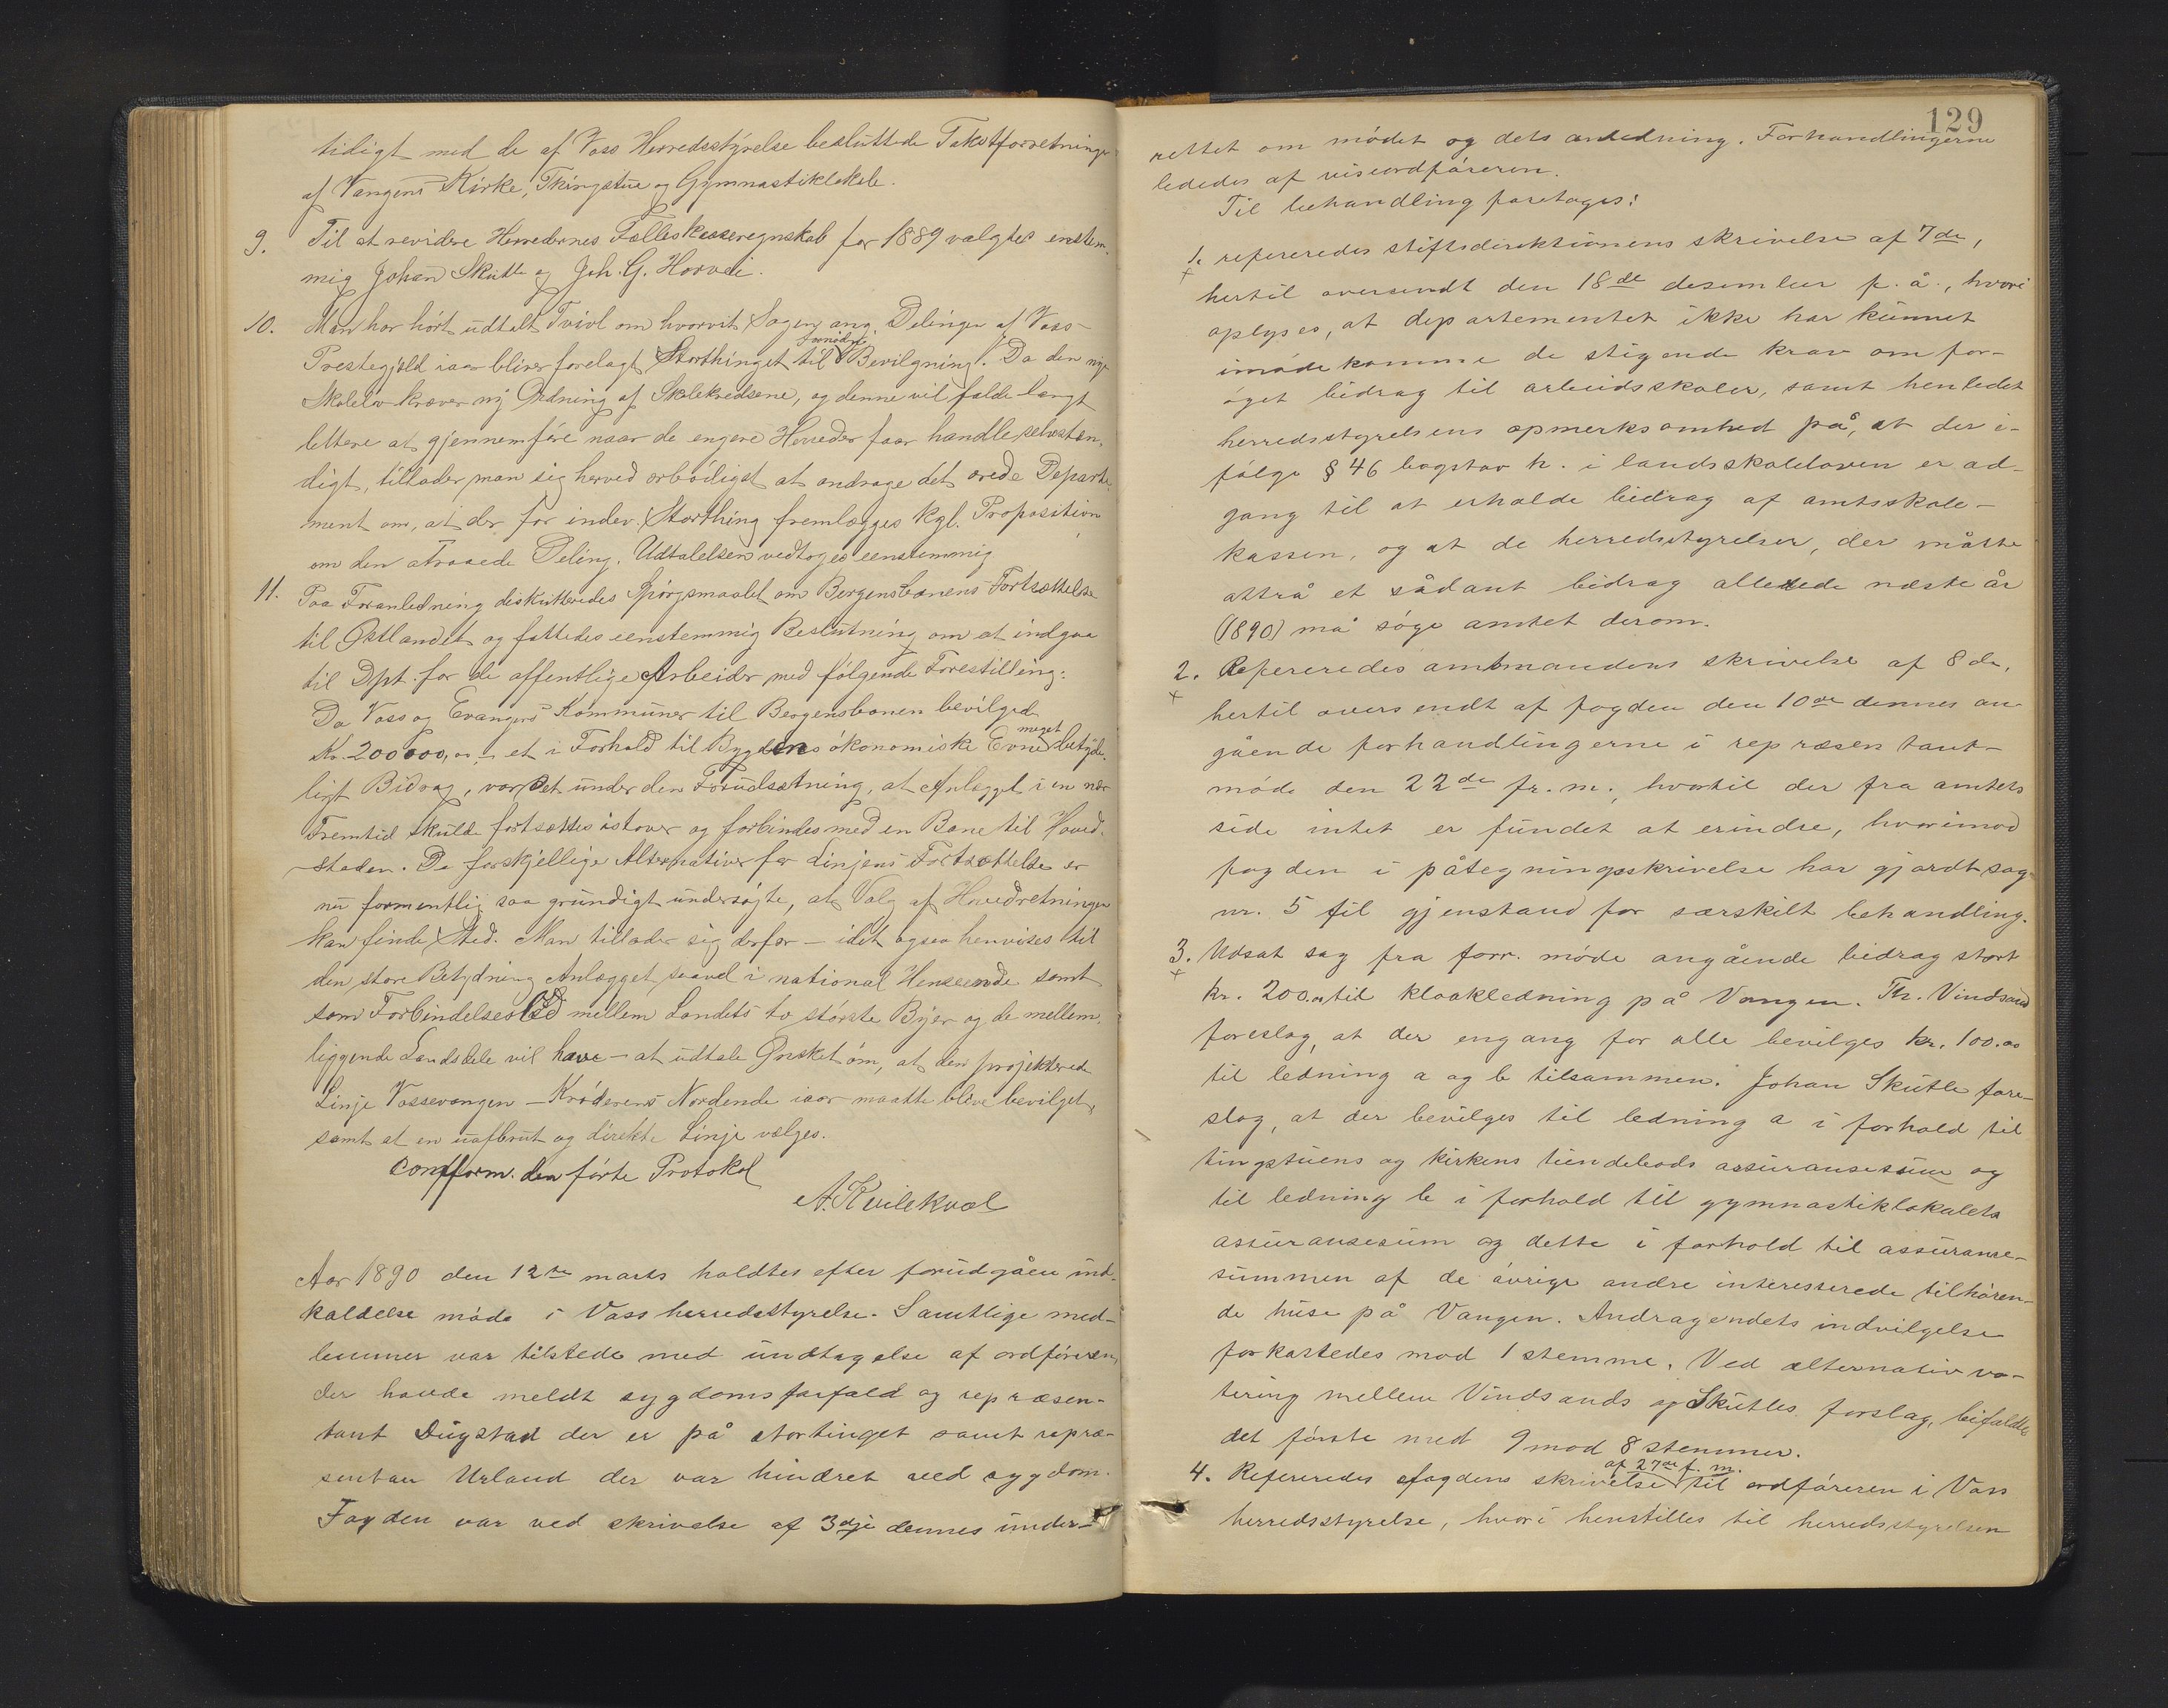 tidigt med de af Voss Herredsstyrelse besluttede Takstforretninger
af Vangens Kirke, Thingstue og Gymnastiklokale.
9. Til at revidere Herredernes Fælleskasseregnskab for 1889 valgtes enstem-
mig Johan Skutle og Joh. G. Horvei.
10. Man har hört udtalt Tvivl om hvorvit Sagen ang. Delingen af Voss
Prestegjeld iaar bliver forelagt Storthinget til fornöden Bevilgning. Da den nye
Skolelov kræver ny Ordning af Skolekredsene, og denne vil falde langt
lettere at gjennemföre naar de engere Herreder faar handle selvstæn-
digt, tillader man sig herved ærbödigst at andrage det ærede Departe-
ment om, at der for indev. Storthing fremlægges Kgl. Proposition
om den attraaede Deling. Udtalelsen vedtoges eenstemmig
11. Paa Foranledning diskutteredes Spörgsmaalet om Bergensbanens Fortsættelse
til Østlandet og fattedes eenstemmig Beslutning om at indgaa
til Dpt. for de offentlige Arbeider med fölgende Forestilling:
Da Voss og Evangers Kommuner til Bergensbanen bevilgede
Kr. 200000,00 – et i Forhold til Bygdens ökonomiske Evne meget betyde-
ligt Bidrag, var det under den Forudsætning, at Anlægget i en nær
Fremtid skulde fortsættes östover og forbindes med en Bane til Hoved-
staden. De forskjellige Alternativer for Linjens Fortsættelse er
nu formentlig saa grundigt undersøgte, at Valg af Hovedretningen
kan finde Sted. Man tillader sig derfor – idet ogsaa henvises til
den store Betydning Anlægget saavel i national Henseende samt
som Forbindelsesled mellem Landets to störste Byer og de mellem-
liggende Landsdele vil have – at udtale Önsket om, at den projekterede
Linje Vossevangen – Kröderens Nordende iaar maatte blive bevilget,
samt at en uafbrut og direkte Linje vælges.
Conform. den förte Protokol
A. Kvilekval
Aar 1890 den 12te marts holdtes efter forudgåen ind-
kaldelse möde i Voss herredsstyrelse. Samtlige med-
lemmer var tilstede med undtagelse af ordföreren,
der havde meldt sygdomsforfald og repræsen-
tant Dugstad der er på stortinget samt repræ-
sentan Urland der var hindret ved sygdom.
Fogden var ved skrivelse af 3dje dennes under-
129
rettet om mödet og dets anledning. Forhandlingerne
lededes af viseordföreren.
Til behandling foretoges:
1. refereredes stiftsdirektionens skrivelse af 7de,
hertil oversendt den 18de desember f. å., hvori
oplyses, at departementet ikke har kunnet
imödekomme de stigende krav om for-
öget bidrag til arbeidsskoler, samt henledet
herredsstyrelsens opmerksomhed på, at der i-
fölge § 46 bogstav h. i landsskoleloven er ad-
gang til at erholde bidrag af amtsskole-
kassen, og at de herredsstyrelser, der måtte
attrå et sådant bidrag allerede næste år
(1890) må söge amtet derom.
2. Refereredes amtmandens skrivelse af 8de,
hertil oversendt af fogden den 10de dennes an-
gående forhandlingerne i repræsentant-
möde den 22de fr. m., hvortil der fra amtets
side intet er fundet at erindre, hvorimod
fogden i påtegningsskrivelse har gjordt sag
nr. 5 til gjenstand for særskilt behandling.
3. Udsat sag fra forr. möde angående bidrag stort
kr. 200.00 til kloakledning på Vangen. Th. Vindsand
foreslog, at der engang for alle bevilges kr. 100.00
til ledning a og b tilsammen. Johan Skutle fore-
slog, at der bevilges til ledning a i forhold til
tingstuens og kirkens tiendebods assuransesum og
til ledning b i forhold til gymnastiklokalets
assuransesum og dette i forhold til assuranse-
summen af de övrige andre interesserede tilhören-
de huse på Vangen. Andragendets indvilgelse
forkastedes mod 1 stemme. Ved alternativ vo-
tering mellem Vindsands og Skutles forslag, bifaldtes
det förste med 9 mod 8 stemmer.
4. Refereredes fogdens skrivelse af 27de f. m. til ordföreren i Voss
herredsstyrelse, hvori henstilles til herredsstyrelsen